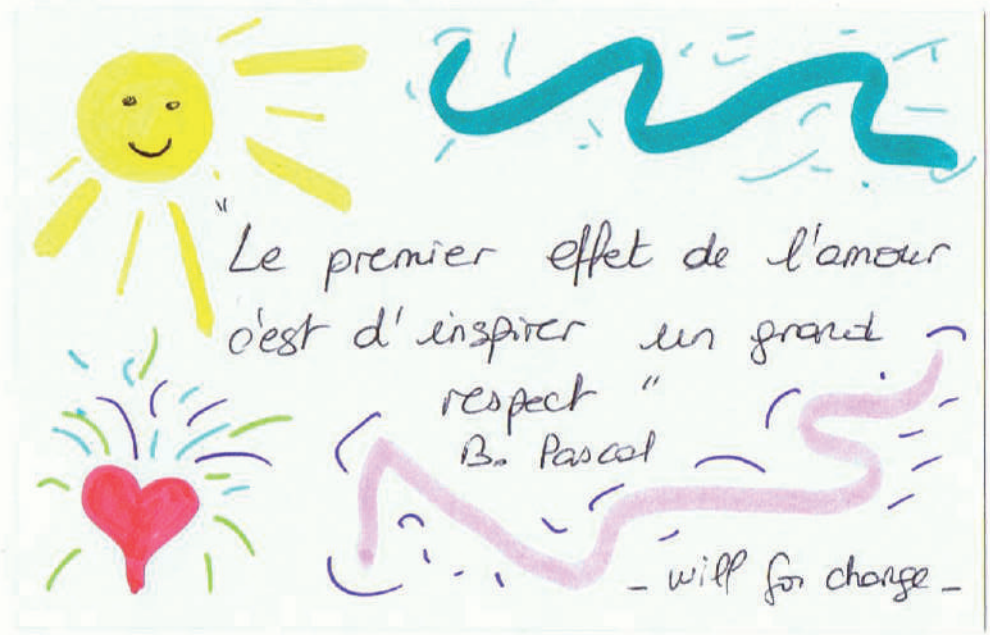 "Le premier effet de l'amour
c'est d'inspirer un grand
respect"
B. Pascal
- will for change -